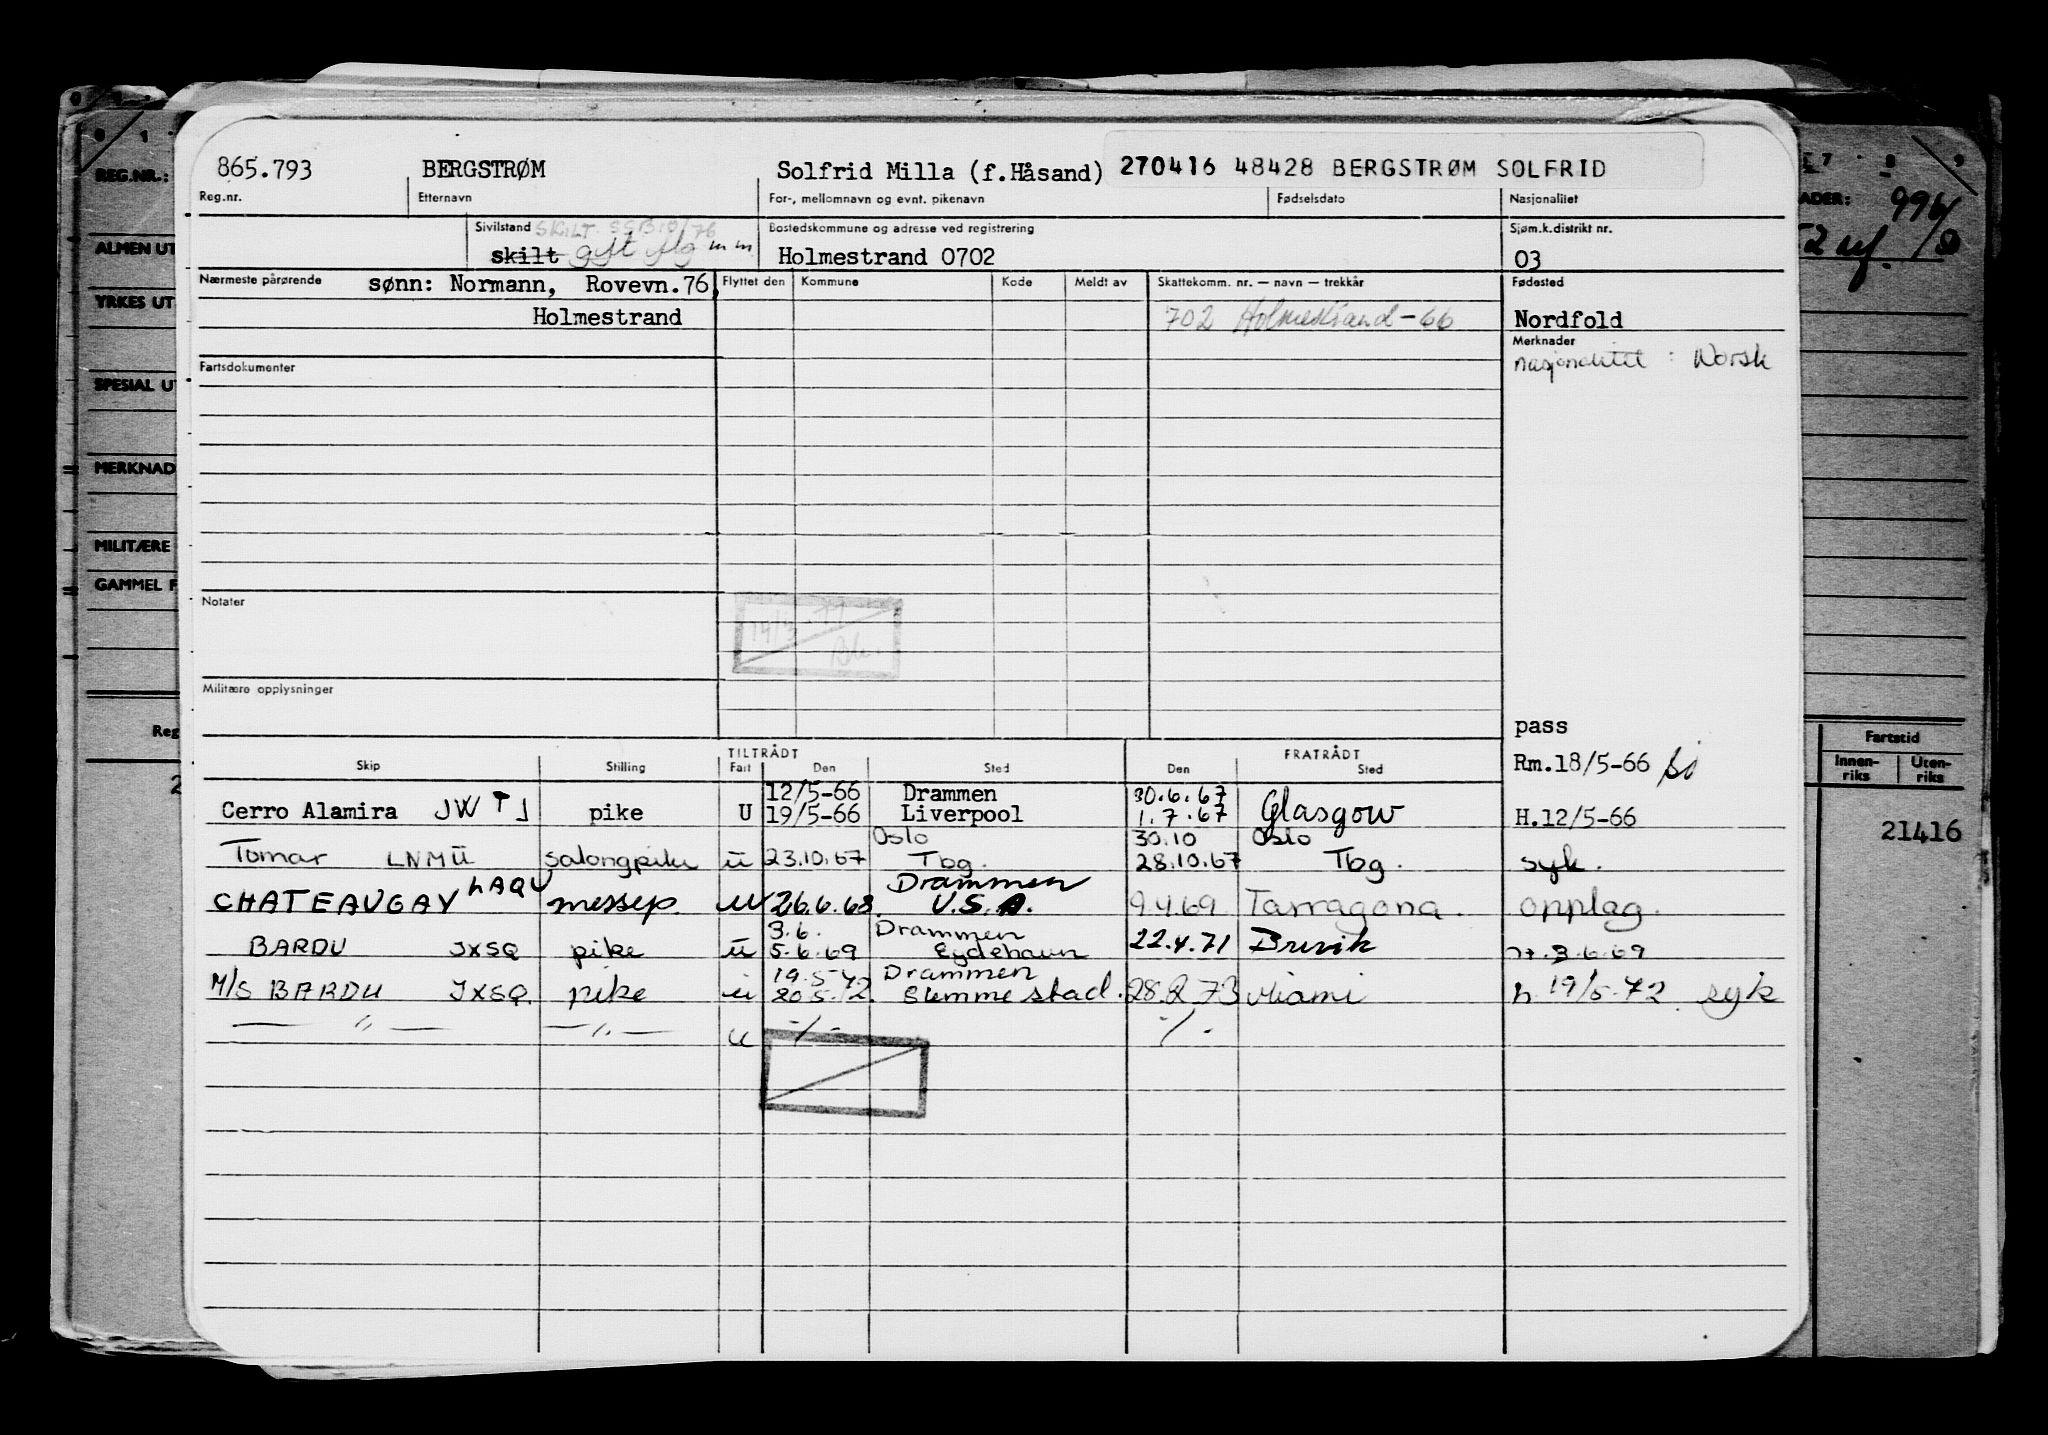 865.793 BERGSTRØM Solfrid Milla (f.Håsand) 270416 48428 BERGSTRØM SOLFRID
Reg.nr. Etternavn For-, mellomnavn og evnt. pikenavn Fødselsdato Nasjonalitet
Sivilstand SKILT SSB 10/76 Bostedskommune og adresse ved registrering Sjøm.k.distrikt nr.
skilt gift Holmestrand 0702 03
Nærmeste pårørende sønn: Normann, Rovevn.76, Flyttet den Kommune Kode Meldt av Skattekomm. nr. — navn — trekkår Fødested
Holmestrand 702 Holmestrand-66 Nordfold
Merknader
Nasjonalitet : Norsk
Fartsdokumenter
Notater
14/3-77
Militære opplysninger
pass
TILTRÅDT FRATRÅDT
Skip Stilling Fart Den Sted Den Sted
Rm.18/5-66
12/5-66 Drammen 30.6.67
Cerro Alamira JWTJ pike U 19/5-66 Liverpool 1.7.67 Glasgow H.12/5-66
Oslo 30.10 Oslo
Tomar LNMU salongpike u 23.10.67 Tbg. 28.10.67 Tbg. syk.
Drammen
CHATEAUGAY LAQV messep. u 26.6.68 U.S.A. 9.4.69 Tarragona. opplag.
3.6. Drammen
BARDU JXSQ pike u 5.6.69 Eydehavn 22.4.71 Brevik H.3.6.69
19.5.72 Drammen
M/S BARDU JXSQ. pike u 20.5.72. Slemmestad. 28.2.73 Miami h. 19/5-72. syk
— " — — " — u -/- -/-
REG.NR.:
ALMEN UT
YRKES UT
SPESIAL UT
MERKNAD
MILITÆRE
GAMMEL F
Reg
2
0 1
7 8 9
ADER: 996/
Fartstid
Innen-riks Uten-riks
21416